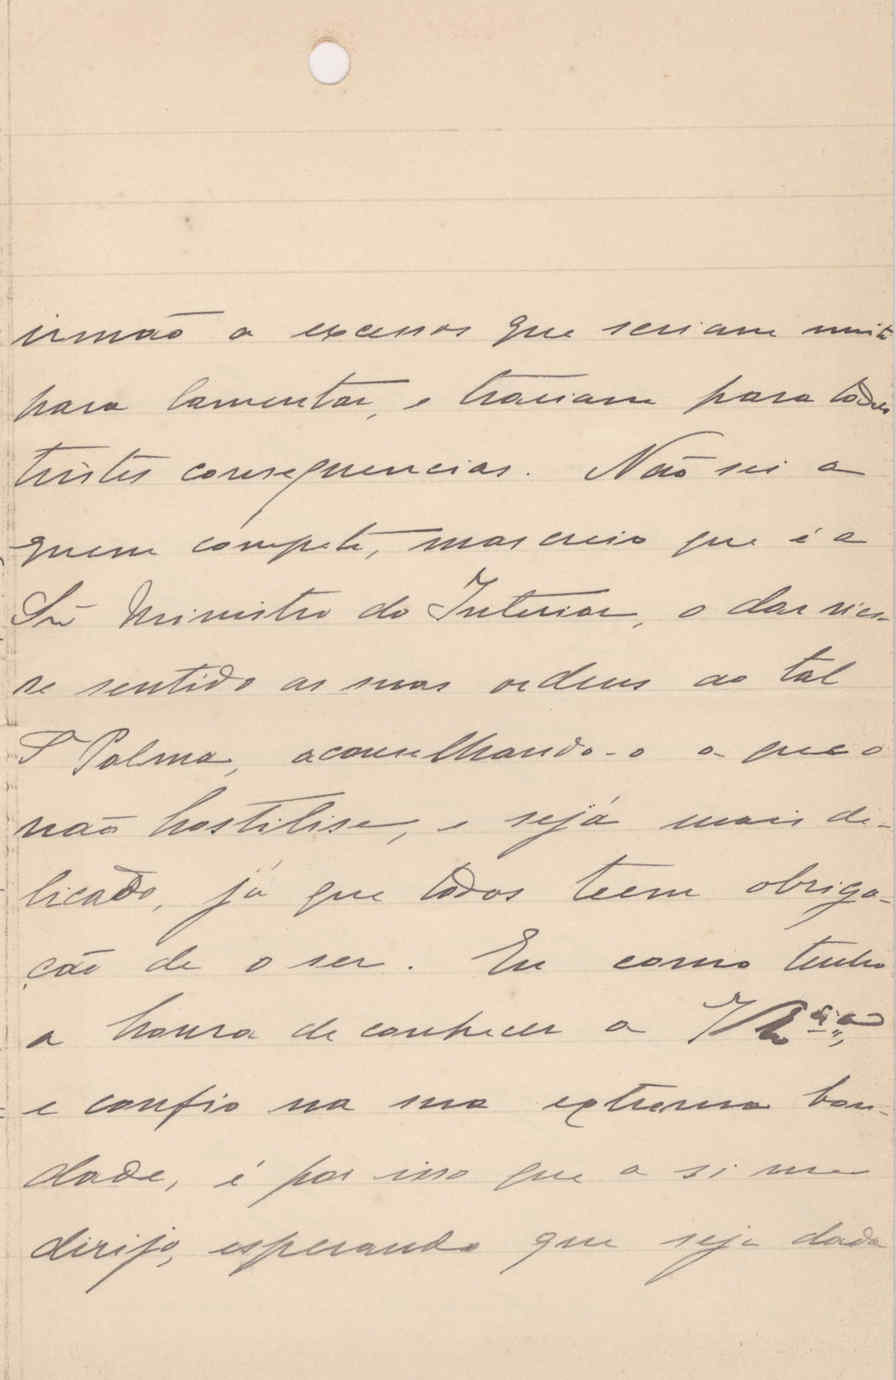 irmão a excessos que seriam muito
para lamentar, e trariam para todos
tristes consequencias. Não sei a
quem compete, mas creio que é a
Snr Ministro do Interior, o dar nes-
se sentido as suas ordens ao tal
Sr Palma, aconselhando-o a que o
não hostilise, e sejá mais de-
licado, já que todos teem obriga-
ção de o ser. Eu como tenho
a honra de conhecer a V
e confio na sua extrema bon-
dade, é por isso que a si me
dirijo, esperando que seja dada